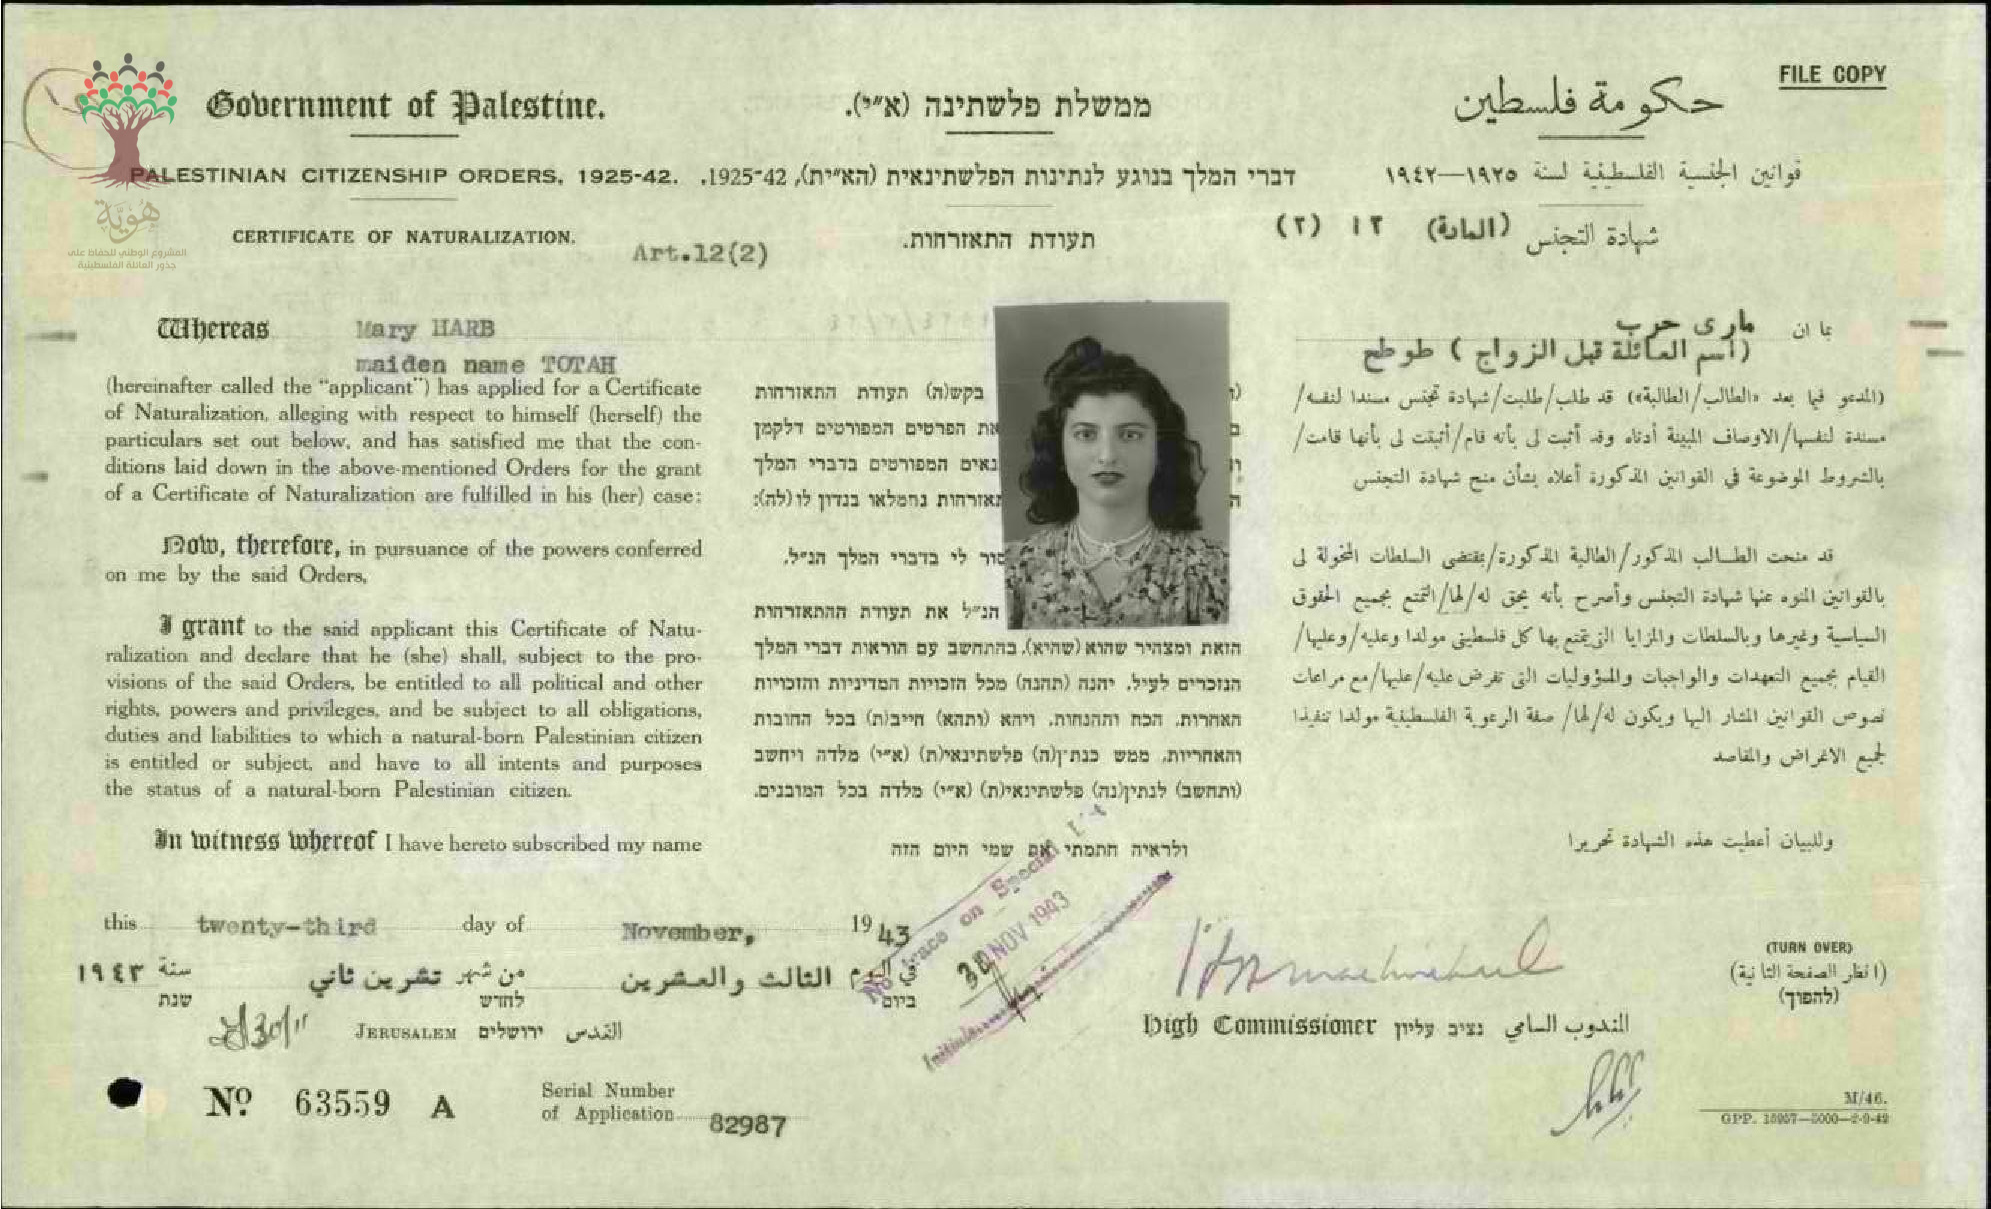 FILE COPY
Government of Palestine.
ממשלת פלשתינה (א״י).
حكومة فلسطين
PALESTINIAN CITIZENSHIP ORDERS, 1925-42.
דברי המלך בנוגע לנתינות הפלשתינאית (הא״ית), 1925-42.
قوانين الجنسية الفلسطينية لسنة ١٩٢٥—١٩٤٢
هُوِيَّة
المشروع الوطني للحفاظ على
جذور العائلة الفلسطينية
CERTIFICATE OF NATURALIZATION.
Art.12(2)
תעודת התאזרחות.
شهادة التجنس (المادة) ١٢ (٢)
Whereas Mary HARB
maiden name TOTAH
(hereinafter called the “applicant”) has applied for a Certificate
of Naturalization, alleging with respect to himself (herself) the
particulars set out below, and has satisfied me that the con-
ditions laid down in the above-mentioned Orders for the grant
of a Certificate of Naturalization are fulfilled in his (her) case:
Now, therefore, in pursuance of the powers conferred
on me by the said Orders,
I grant to the said applicant this Certificate of Natu-
ralization and declare that he (she) shall, subject to the pro-
visions of the said Orders, be entitled to all political and other
rights, powers and privileges, and be subject to all obligations,
duties and liabilities to which a natural-born Palestinian citizen
is entitled or subject, and have to all intents and purposes
the status of a natural-born Palestinian citizen.
In witness whereof I have hereto subscribed my name
בקש(ה) תעודת התאזרחות
את הפרטים המפורטים דלקמן
נאים המפורטים בדברי המלך
תאזרחות נתמלאו בנדון לו (לה):
סור לי בדברי המלך הנ״ל,
הנ״ל את תעודת ההתאזרחות
הזאת ומצהיר שהוא (שהיא), בהתחשב עם הוראות דברי המלך
הנזכרים לעיל, יהנה (תהנה) מכל הזכויות המדיניות והזכויות
האחרות, הכח וההנחות, ויהא (ותהא) חייב(ת) בכל החובות
והאחריות, ממש כנתין(ה) פלשתינאי(ת) (א״י) מלדה ויחשב
(ותחשב) לנתין(נה) פלשתינאי(ת) (א״י) מלדה בכל המובנים.
ולראיה חתמתי את שמי היום הזה
بما ان ماري حرب
(اسم العائلة قبل الزواج) طوطح
(المدعو فيما بعد «الطالب/الطالبة») قد طلب/طلبت/شهادة تجنس مسندا لنفسه/
مسندة لنفسها/الاوصاف المبينة أدناه وقد أثبت لي بأنه قام/أثبتت لي بأنها قامت/
بالشروط الموضوعة في القوانين المذكورة أعلاه بشأن منح شهادة التجنس
قد منحت الطالب المذكور/الطالبة المذكورة/بمقتضى السلطات المخولة لي
بالقوانين المنوه عنها شهادة التجنس وأصرح بأنه يحق له/لها/التمتع بجميع الحقوق
السياسية وغيرها وبالسلطات والمزايا التي يتمتع بها كل فلسطيني مولدا وعليه/وعليها/
القيام بجميع التعهدات والواجبات والمسؤوليات التي تفرض عليه/عليها/مع مراعات
نصوص القوانين المشار اليها ويكون له/لها/ صفة الرعوية الفلسطينية مولدا تنفيذا
لجميع الاغراض والمقاصد
وللبيان أعطيت هذه الشهادة تحريرا
this twenty-third day of November, 1943
في اليوم الثالث والعشرين من شهر تشرين ثاني سنة ١٩٤٣
ביום לחדש שנת
30/11
JERUSALEM ירושלים القدس
No trace on Special
30 NOV 1943
Initials
High Commissioner נציב עליון المندوب السامي
(TURN OVER)
(انظر الصفحة الثانية)
(להפוך)
No. 63559 A
Serial Number
of Application 82987
M/46.
GPP. 15957—5000—2-9-42